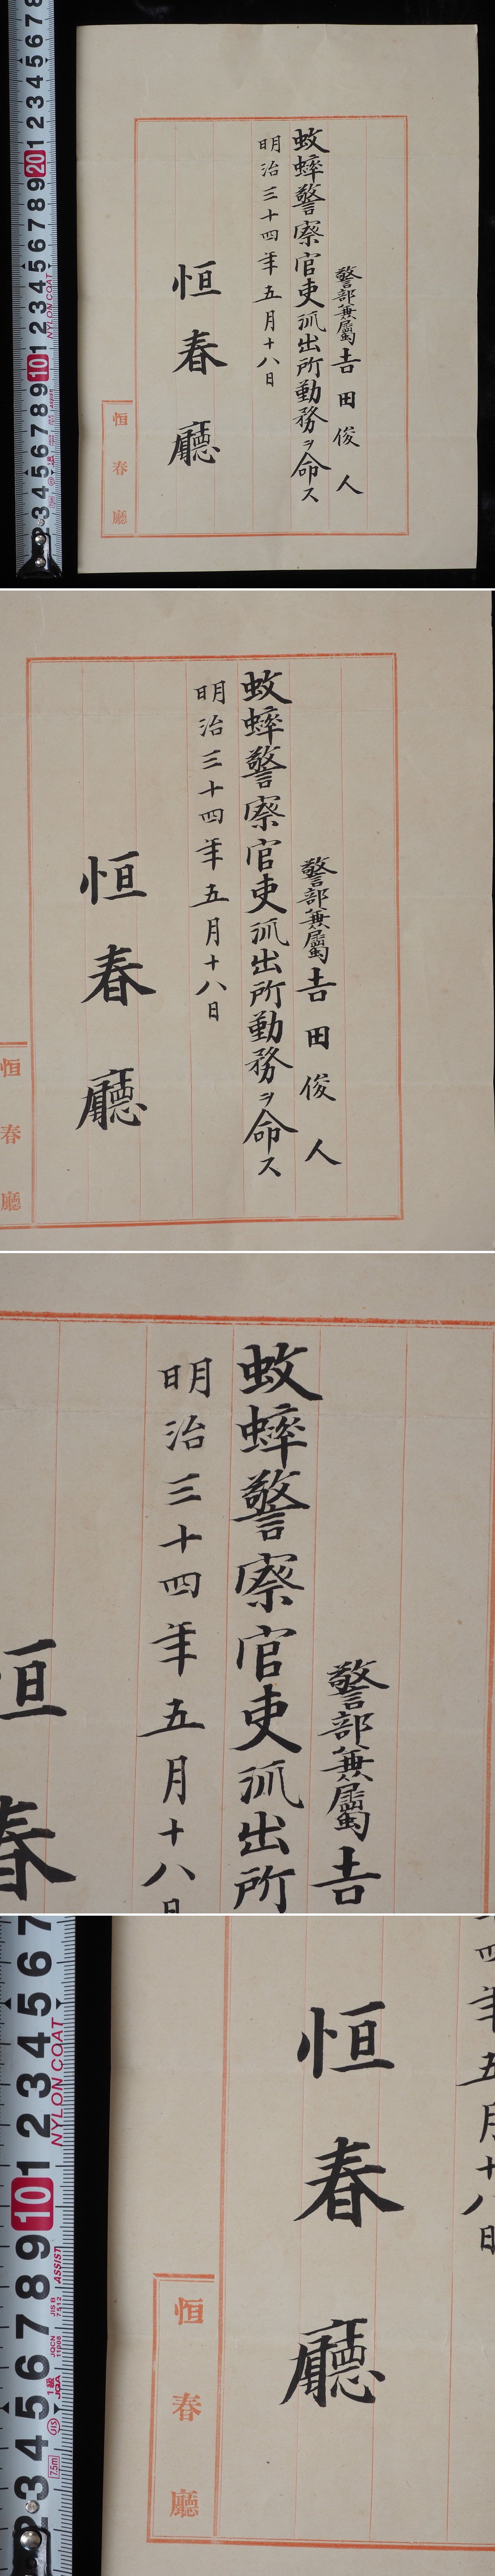 警部兼屬吉田俊人
蚊蟀警察官吏派出所勤務ヲ命ス
明治三十四年五月十八日
恒春廳
恒春廳
1 2 3 4 5 6 7 8 9 10 1 2 3 4 5 6 7 8 9 20 1 2 3 4 5 6 7 8
NYLON COAT
警部兼屬吉田俊人
蚊蟀警察官吏派出所勤務ヲ命ス
明治三十四年五月十八日
恒春廳
恒春廳
警部兼屬吉
蚊蟀警察官吏派出所
明治三十四年五月十八日
恒春
四年五月十八日
恒春廳
恒春廳
2 3 4 5 6 7 8 9 10 1 2 3 4 5 6 7
NYLON COAT
ASSIST
JIS B 7512
JQA
1級
JIS
7.5m